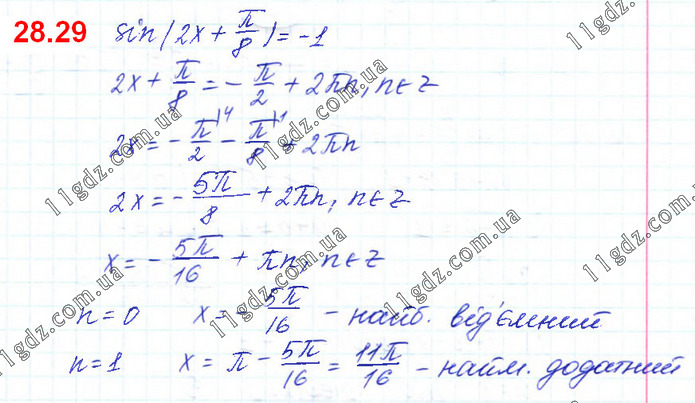 28.29 sin(2x + π/8) = -1
2x + π/8 = - π/2 + 2πn, n∈Z
2x = - π/2 |4 - π/8 |1 + 2πn
2x = - 5π/8 + 2πn, n∈Z
x = - 5π/16 + πn, n∈Z
n=0 x = - 5π/16 - найб. від'ємний
n=1 x = π - 5π/16 = 11π/16 - найм. додатний
11gdz.com.ua
11gdz.com.ua
11gdz.com.ua
11gdz.com.ua
11gdz.com.ua
11gdz.com.ua